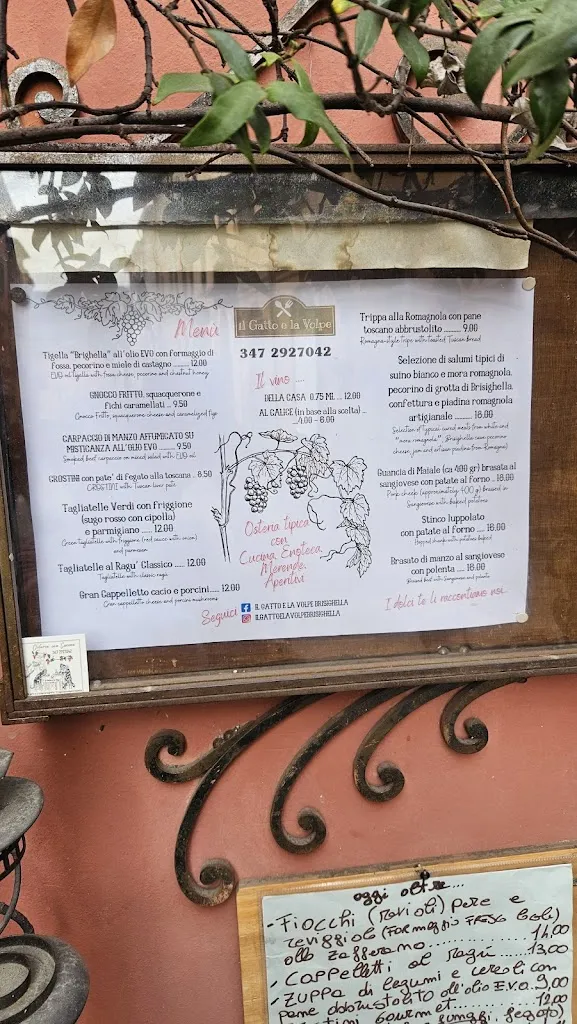 Menù
Tigella "Brighella" all'olio EVO con formaggio di
fossa, pecorino e miele di castagno ........ 12.00
EVO oil tigella with fossa cheese, pecorino and chestnut honey
GNOCCO FRITTO, squacquerone e
fichi caramellati .. 9.50
Gnocco fritto, squacquerone cheese and caramelized figs
CARPACCIO DI MANZO AFFUMICATO SU
MISTICANZA ALL'OLIO EVO...........9.50
Smoked beef carpaccio on mixed salad with EVO oil
CROSTINI con pate' di fegato alla toscana . 8.50
CROSTINI with Tuscan liver pate
Tagliatelle Verdi con friggione
(sugo rosso con cipolla)
e parmigiano ...... 12.00
Green tagliatelle with friggione (red sauce with onion)
and parmesan
Tagliatelle al Ragu' Classico ..... 12.00
Tagliatelle with classic ragù
Gran Cappelletto cacio e porcini..... 12.00
Gran cappelletto cheese and porcini mushrooms
il Gatto e la Volpe
347 2927042
Il vino ....
DELLA CASA 0.75 Ml .. 12.00
AL CALICE (in base alla scelta) ..
...4.00 - 6.00
Osteria tipica
con
Cucina, Enoteca,
Merende,
Aperitivi
Seguici
IL GATTO E LA VOLPE BRISIGHELLA
ILGATTOELAVOLPEBRISIGHELLA
Trippa alla Romagnola con pane
toscano abbrustolito ........ 9.00
Romagna-style tripe with toasted Tuscan bread
Selezione di salumi tipici di
suino bianco e mora romagnola,
pecorino di grotta di Brisighella,
confettura e piadina romagnola
artigianale ....... 18.00
Selection of typical cured meats from white and
"mora romagnola", Brisighella cave pecorino
cheese, jam and artisan piadina from Romagna)
Guancia di Maiale (ca 400 gr) brasata al
sangiovese con patate al forno .. 18.00
Pork cheek (approximately 400 g) braised in
Sangiovese with baked potatoes
Stinco luppolato
con patate al forno .... 18.00
Hopped shank with potatoes baked
Brasato di manzo al sangiovese
con polenta ...... 18.00
Braised beef with Sangiovese and polenta
I dolci te li raccontiamo noi...
oggi oltre...
- FIOCCHI (ravioli) pere e
raviggiolo (FORMAGGIO FRESCO
allo zafferano.............. 14,00
• CAPPELLETTI al ragù...... 13,00
• ZUPPA di legumi e cereali con
pane abbrustolito all'olio E.V.O. 9,00
gourmet............ 12,00
funghi, fegato)